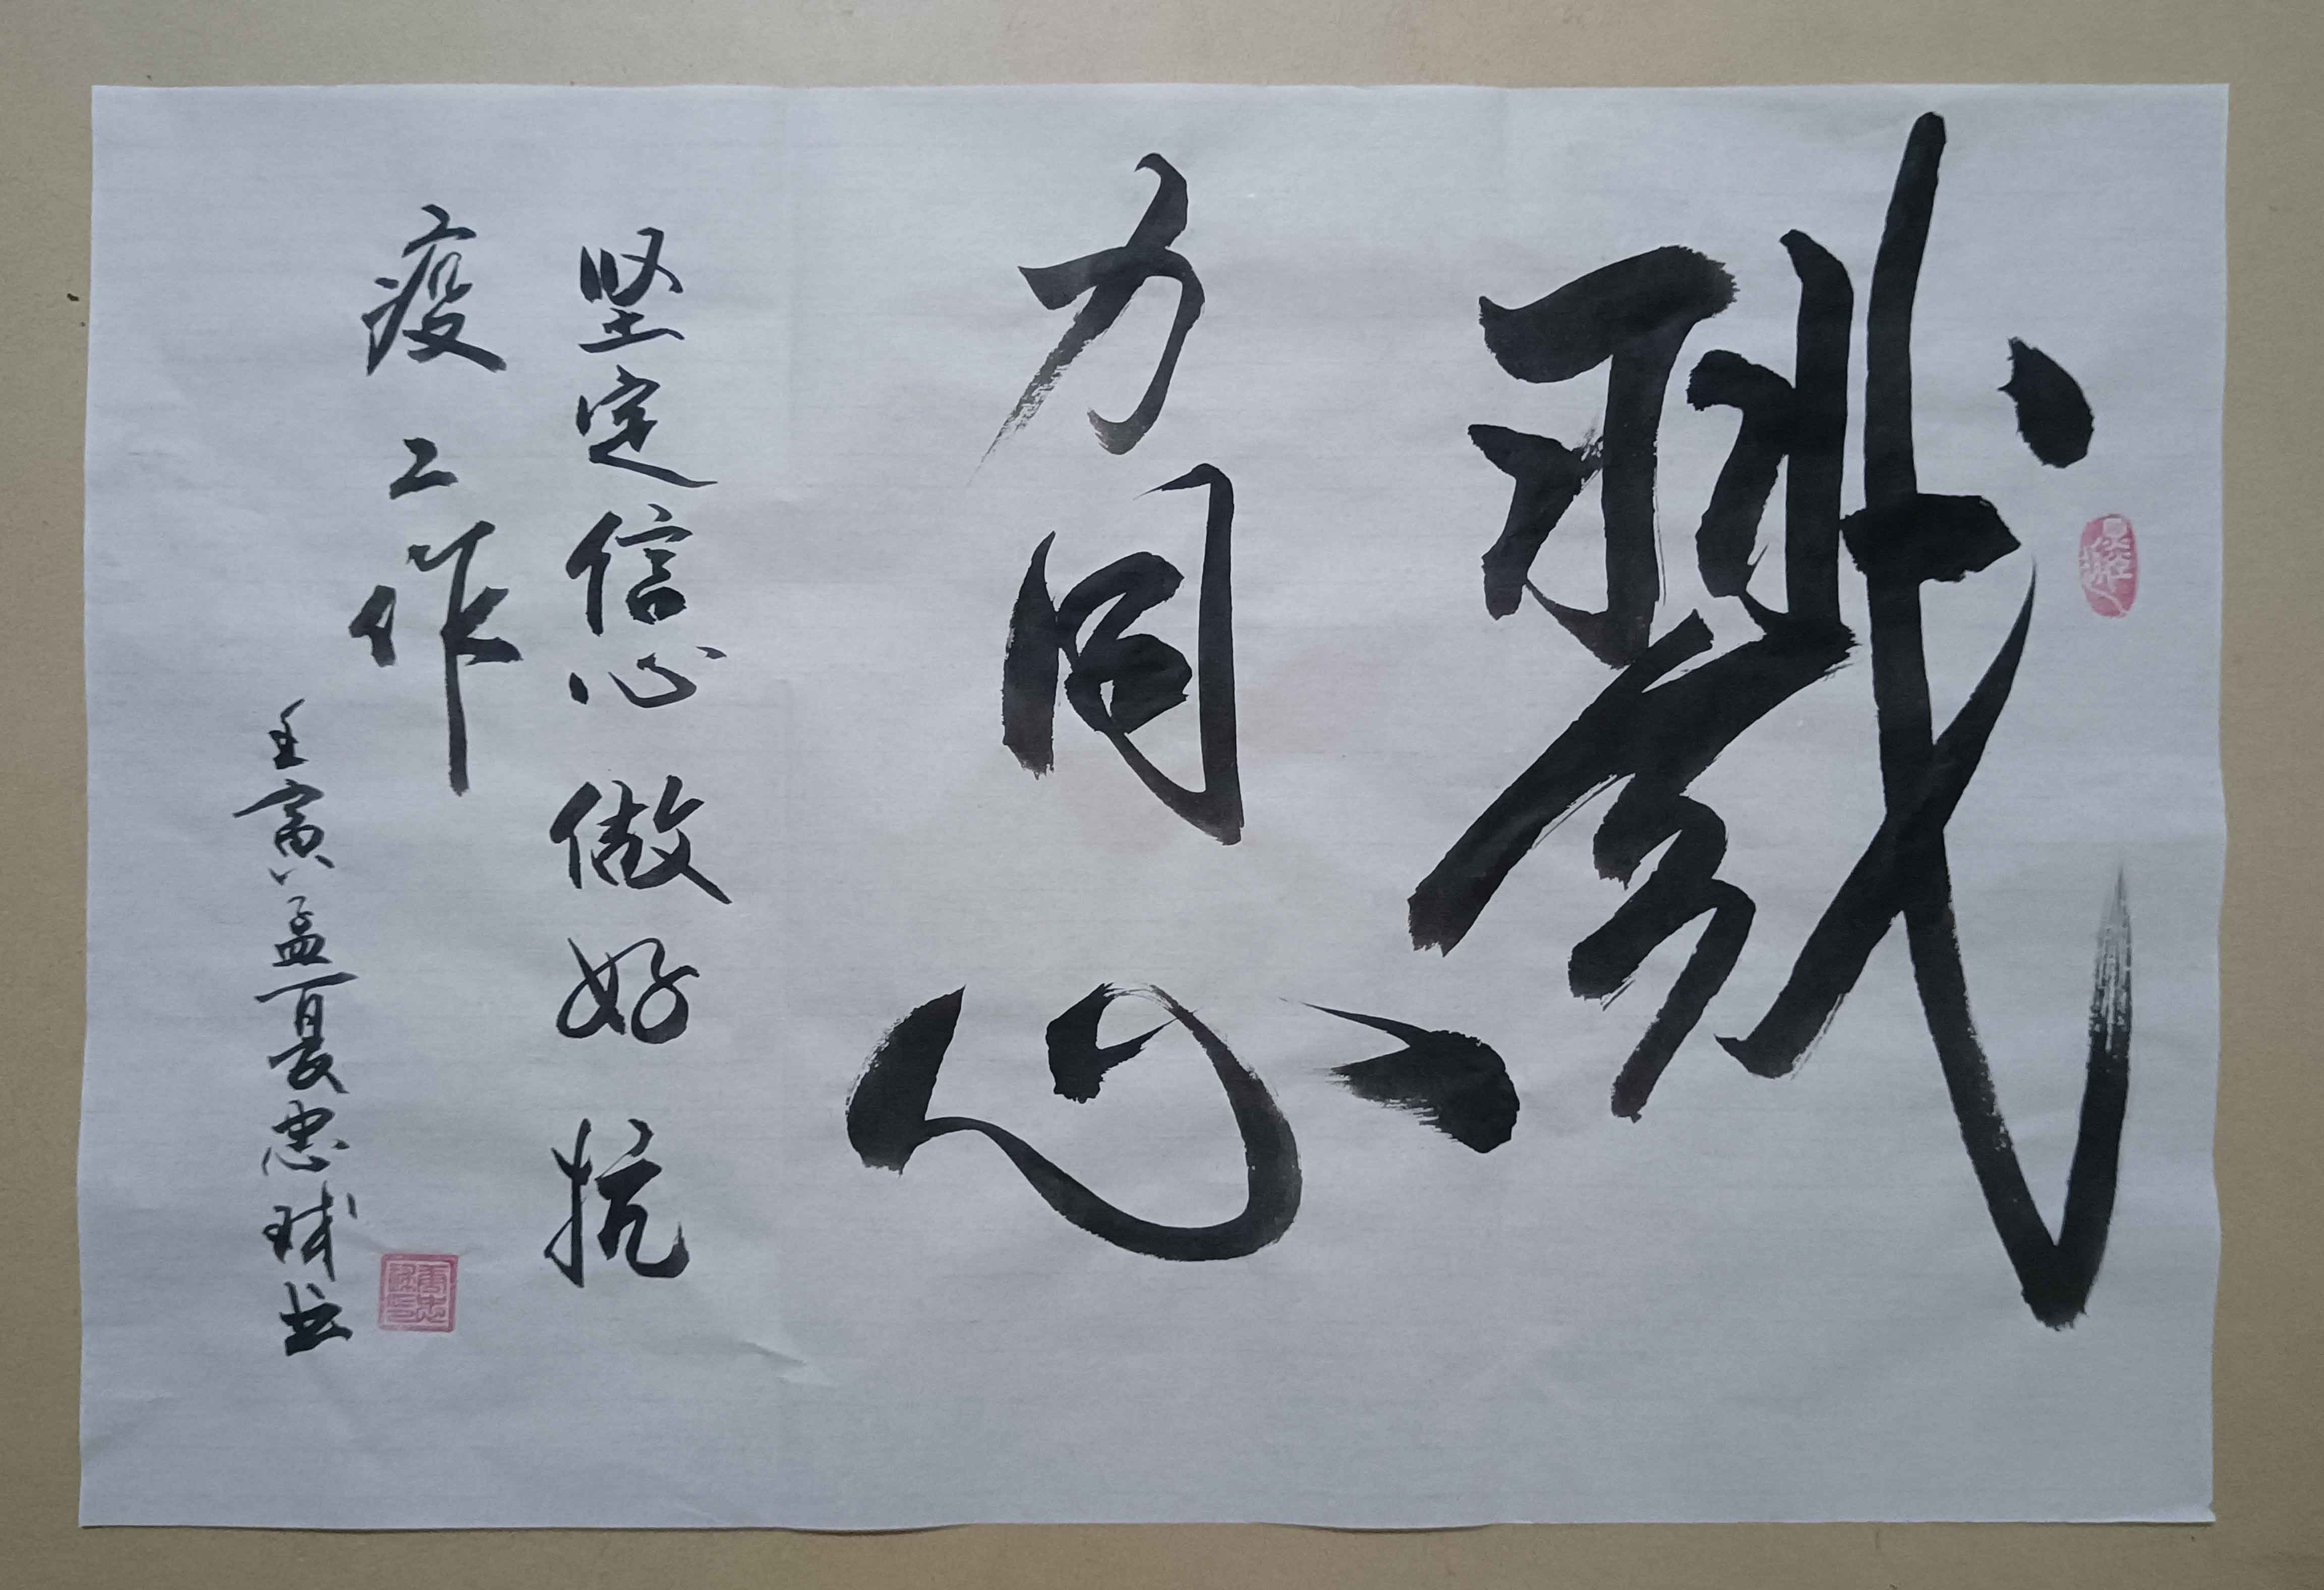 戮
力同心
坚定信心做好抗
疫工作
壬寅孟夏忠珹书